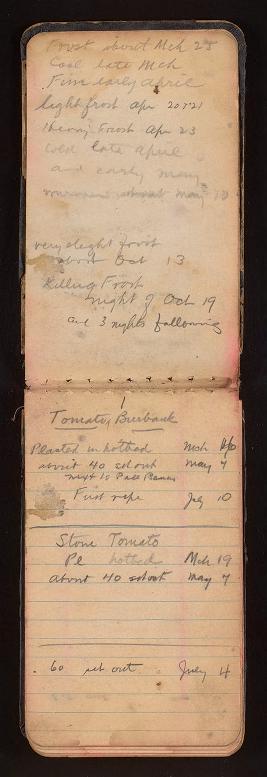 Frost about Mch 25
Cool late Mch
Fine early April
light frost apr 20 & 21
Heavy Frost Apr 23
Cold late April
and early may
about may 10
very slight frost
about Oct 13
Killing Frost
night of Oct 19
and 3 nights following
1
Tomato, Burbank
Planted in hotbed Mch
about 40 set out May 7
next to Pole Beans
First ripe July 10
Stone Tomato
Pl hotbed Mch 19
about 40 set out May 7
60 set out July 4